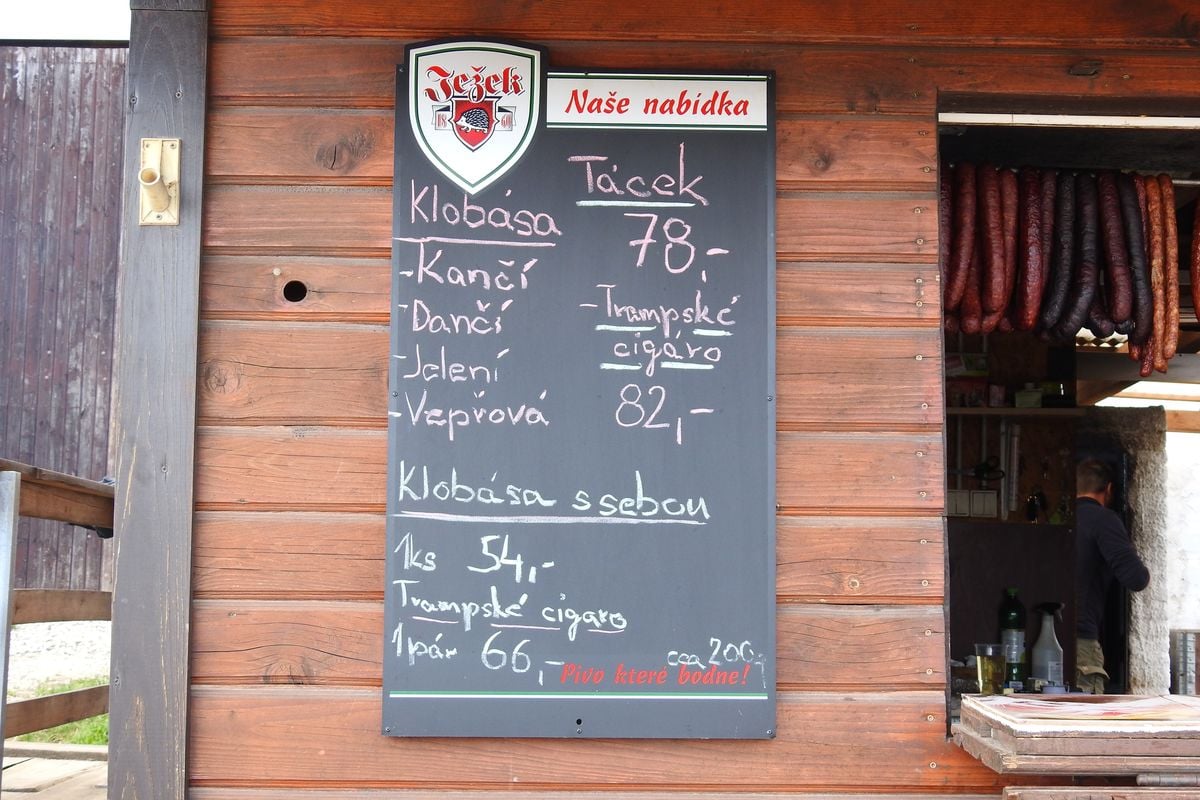 Ježek
18 60
Naše nabídka
Tácek
Klobása
78,-
-Kančí
-Dančí
-Jelení
-Vepřová
-Trampské
cigáro
82,-
Klobása s sebou
1ks 54,-
Trampské cigaro
1pár 66,- cca 200g
Pivo které bodne!